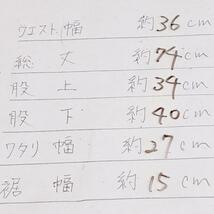 ウエスト幅 約36cm
総丈 約74cm
股上 約34cm
股下 約40cm
ワタリ幅 約27cm
裾幅 約15cm